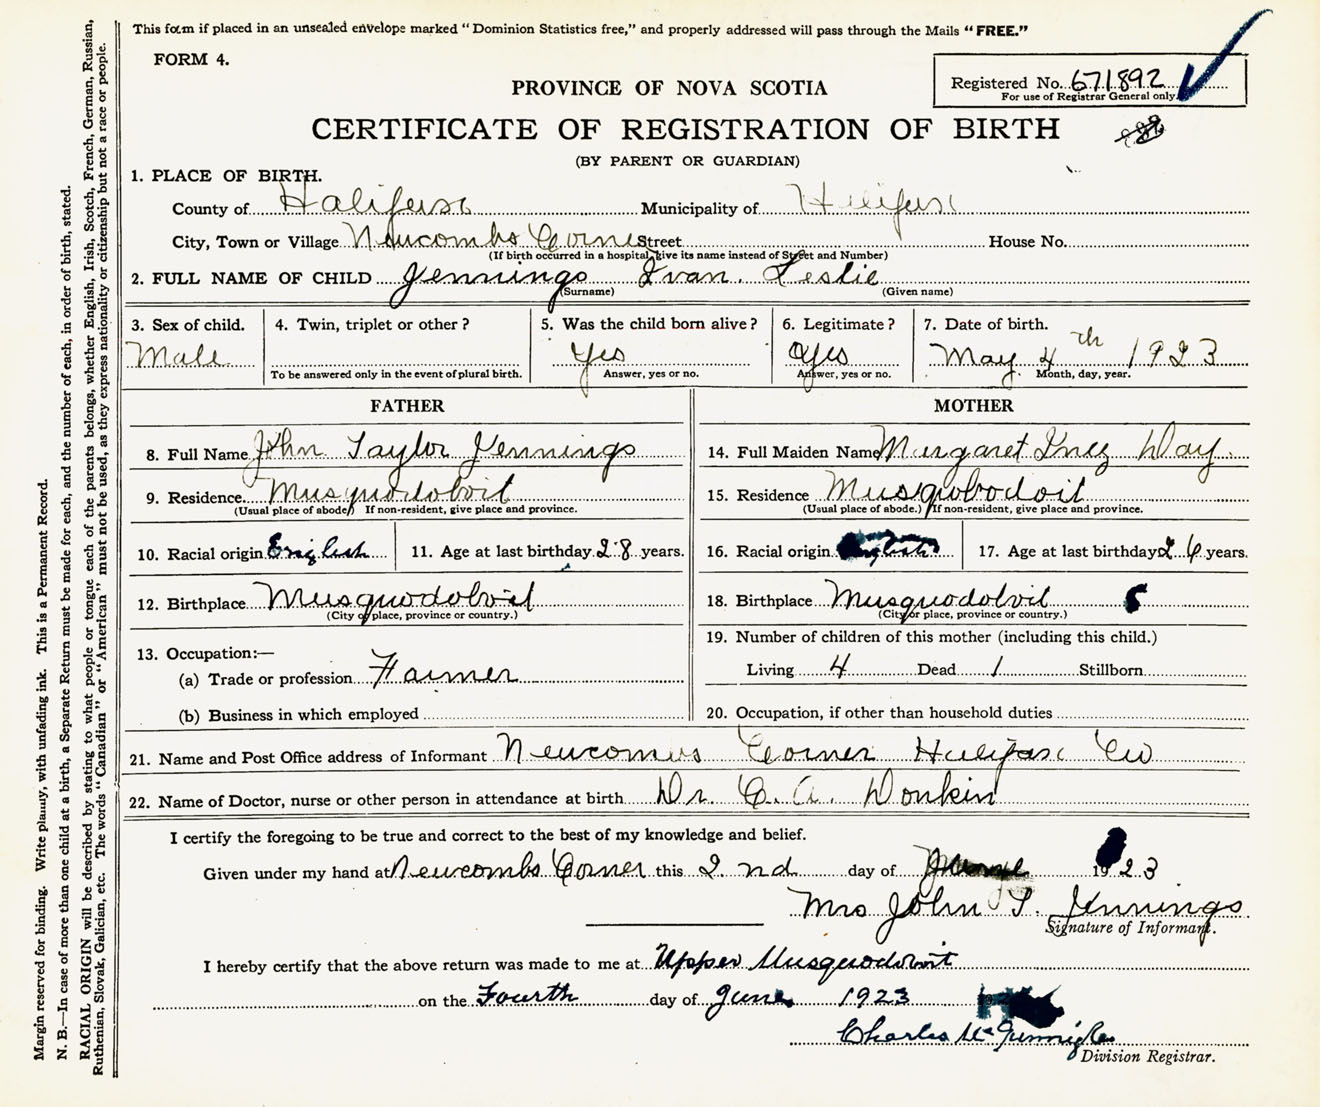 This form if placed in an unsealed envelope marked "Dominion Statistics free," and properly addressed will pass through the Mails "FREE."
FORM 4.
Registered No. 671892
For use of Registrar General only.
PROVINCE OF NOVA SCOTIA
CERTIFICATE OF REGISTRATION OF BIRTH
(BY PARENT OR GUARDIAN)
1. PLACE OF BIRTH.
County of Halifax Municipality of Halifax
City, Town or Village Newcombs Corner Street House No.
(If birth occurred in a hospital, give its name instead of Street and Number)
2. FULL NAME OF CHILD Jennings Ivan. Leslie
(Surname) (Given name)
3. Sex of child. 4. Twin, triplet or other? 5. Was the child born alive? 6. Legitimate? 7. Date of birth.
Male Yes Yes May 4th 1923
To be answered only in the event of plural birth. Answer, yes or no. Answer, yes or no. Month, day, year.
FATHER MOTHER
8. Full Name John Taylor Jennings 14. Full Maiden Name Margaret Inez Day
9. Residence Musquodoboit 15. Residence Musquobodoit
(Usual place of abode) If non-resident, give place and province. (Usual place of abode.) If non-resident, give place and province.
10. Racial origin English 11. Age at last birthday 28 years. 16. Racial origin English 17. Age at last birthday 26 years.
12. Birthplace Musquodoboit 18. Birthplace Musquodoboit 5
(City or place, province or country.) (City or place, province or country.)
13. Occupation:— 19. Number of children of this mother (including this child.)
(a) Trade or profession Farmer Living 4 Dead 1 Stillborn
(b) Business in which employed 20. Occupation, if other than household duties
21. Name and Post Office address of Informant Newcombs Corner Halifax Co
22. Name of Doctor, nurse or other person in attendance at birth Dr. C. A. Donkin
I certify the foregoing to be true and correct to the best of my knowledge and belief.
Given under my hand at Newcombs Corner this 2nd day of 1923
Mrs John T. Jennings
Signature of Informant.
I hereby certify that the above return was made to me at Upper Musquodoboit
on the Fourth day of June 1923
Charles
Division Registrar.
Margin reserved for binding. Write plainly, with unfading ink. This is a Permanent Record.
N. B.—In case of more than one child at a birth, a Separate Return must be made for each, and the number of each, in order of birth, stated.
RACIAL ORIGIN will be described by stating to what people or tongue each of the parents belongs, whether English, Irish, Scotch, French, German, Russian,
Ruthenian, Slovak, Galician, etc. The words "Canadian" or "American" must not be used, as they express nationality or citizenship but not a race or people.